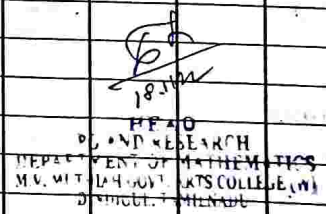 18.11.
HEAD
PG AND RESEARCH
DEPARTMENT OF MATHEMATICS
M.V. MUTHIAH GOVT. ARTS COLLEGE (W)
DINDIGUL, TAMILNADU